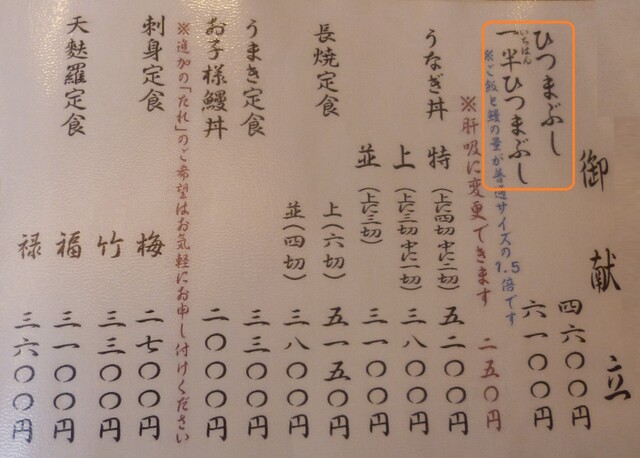 御献立
ひつまぶし 四六〇〇円
一半ひつまぶし 六一〇〇円
いちはん
※ご飯と鰻の量が普通サイズの1.5倍です
※肝吸に変更できます 二五〇円
うなぎ丼 特(上に四切中に二切) 五二〇〇円
上(上に三切中に一切) 三八〇〇円
並(上に三切) 三一〇〇円
長焼定食 上(六切) 五一五〇円
並(四切) 三八〇〇円
うまき定食 三三〇〇円
お子様鰻丼 二〇〇〇円
※追加の「たれ」のご希望はお気軽にお申し付けください
刺身定食 梅 二七〇〇円
竹 三三〇〇円
天麩羅定食 福 三一〇〇円
禄 三六〇〇円